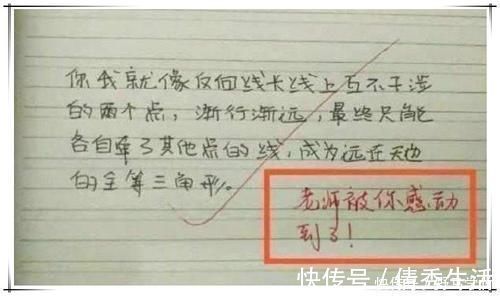 你我就像反向延长线上互不干涉
的两个点，渐行渐远，最终只能
各自牵了其他点的线，成为远在天边
的全等三角形。
老师被你感动
到了！
快传号／倩秀生活